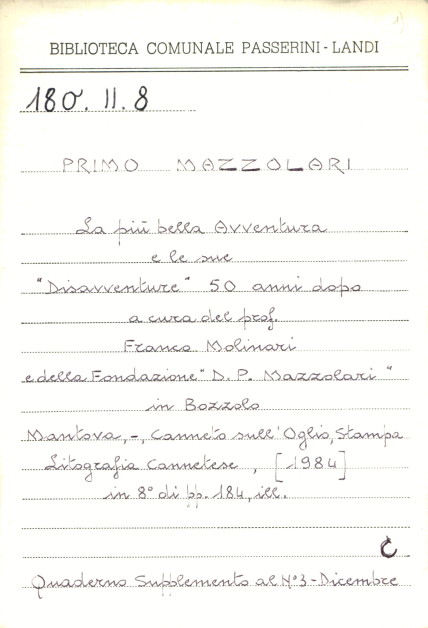 1)
BIBLIOTECA COMUNALE PASSERINI-LANDI
180. II. 8
PRIMO MAZZOLARI
La più bella Avventura
e le sue
"Disavventure" 50 anni dopo
a cura del prof.
Franco Molinari
e della Fondazione "D. P. Mazzolari"
in Bozzolo
Mantova, -, Canneto sull'Oglio, Stampa
Litografia Cannetese, [1984]
in 8° di pp. 184, ill.
C
Quaderno Supplemento al N°3 - Dicembre